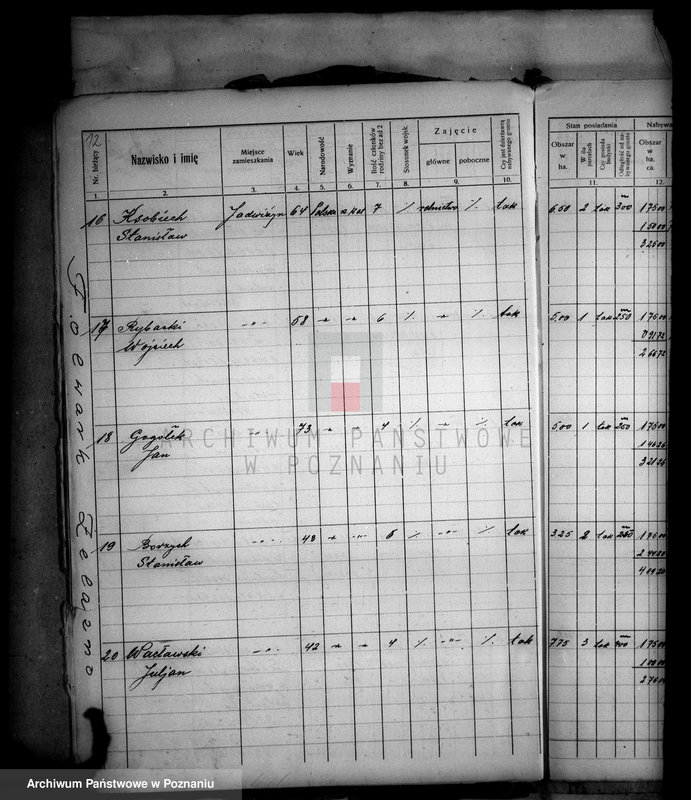 12
Nr. bieżący
Nazwisko i imię
Miejsce zamieszkania
Wiek
Narodowość
Wyznanie
Ilość członków rodziny bez ad 2
Stosunek wojsk.
Zajęcie
główne
poboczne
Czy jest dzierżawcą nabywanego gruntu
Stan posiadania
Obszar w ha.
W ilu parcelach
Czy posiada budynki
Odległość od nabywanego gruntu
Nabywa
Obszar w ha. ca.
1. 2. 3. 4. 5. 6. 7. 8. 9. 10. 11. 12.
16 Ksobiech Jadwiżyn 64 Polska rz. kat 7 % rolnictwo % tak 6.50 2 tak 300 17500
Stanisław 15000
32500
17 Rybacki -"- 58 -"- -"- 6 % -"- % tak 5.00 1 tak 250 17500
Wojciech 09172
26672
18 Gogołek -"- 73 -"- -"- 4 % -"- % tak 5.00 1 tak 250 17500
Jan 14626
32126
19 Borzych -"- 48 -"- -"- 6 % -"- % tak 3.25 2 tak 17500
Stanisław
20 Wacławski -"- 42 -"- -"- 4 % -"- % tak 7.75 3 tak 400 17500
Juljan 10000
27500
Folwark Żeleźno
ARCHIWUM PAŃSTWOWE
W POZNANIU
Archiwum Państwowe w Poznaniu